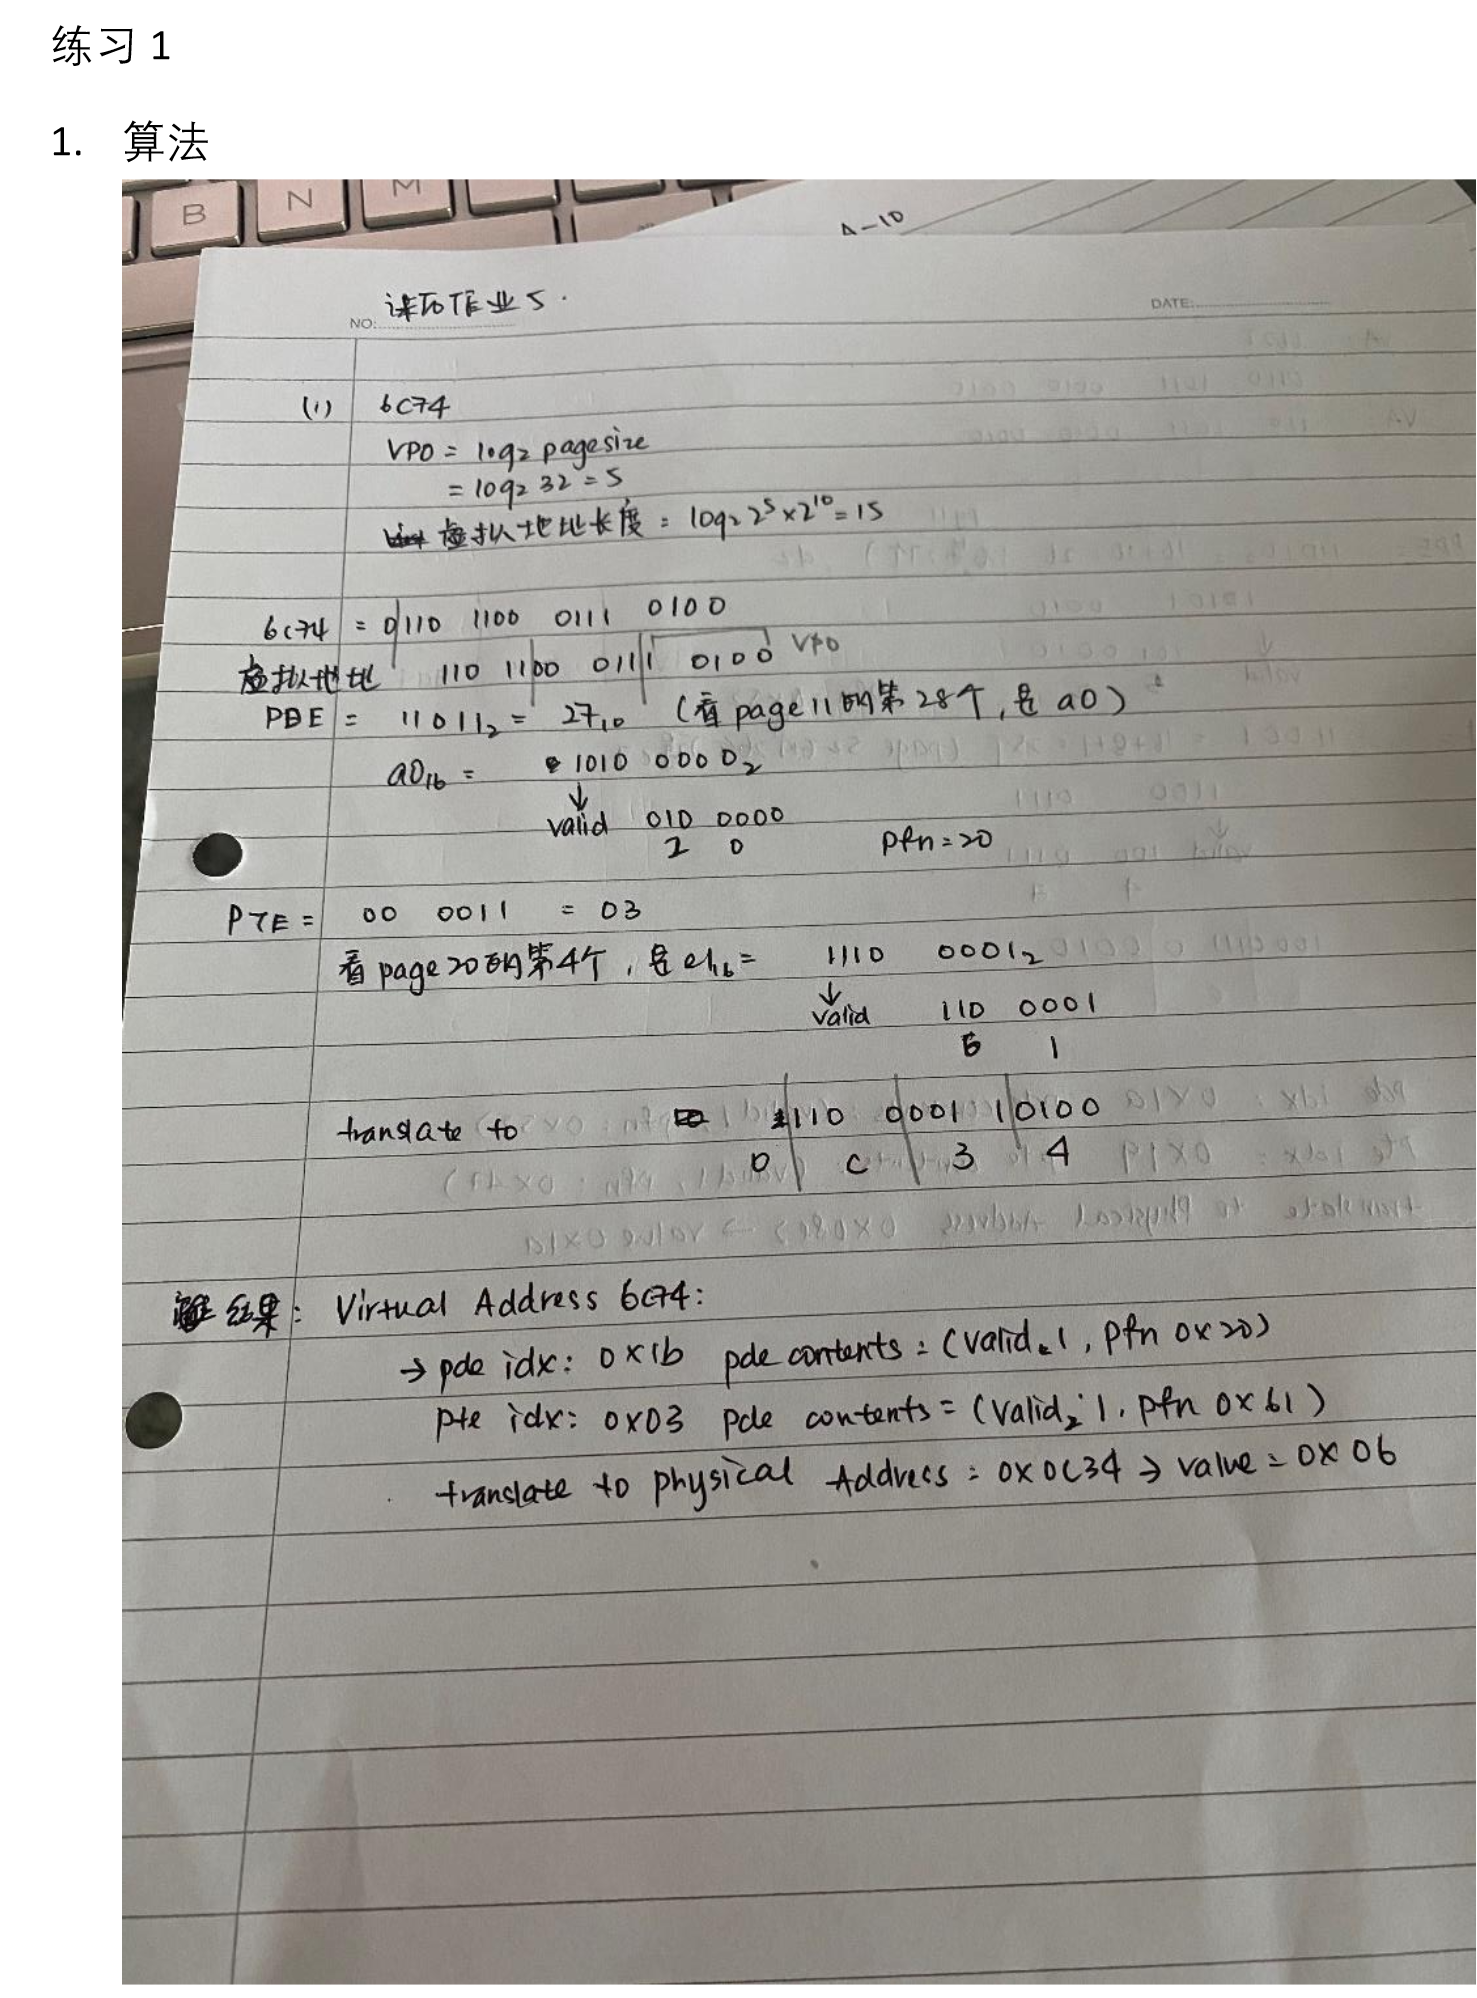 练习 1
1. 算法
B N M
A-10
课后作业5.
NO:
DATE:
(1) 6C74
VPO = log2 pagesize
= log2 32 = 5
虚拟地址长度 = log2 2^5×2^10 = 15
6C74 = 0110 1100 0111 0100
虚拟地址 110 1100 0111 0100 VPO
PDE = 11011₂ = 27₁₀ (看page11的第28个,是a0)
a0₁₆ = 1010 0000₂
↓
valid 010 0000
2 0 Pfn=20
PTE = 00 0011 = 03
看page20的第4个,是e1₁₆ = 1110 0001₂
↓
valid 110 0001
6 1
translate to 110 0001 10100
0 C 3 4
结果: Virtual Address 6C74:
→ pde idx: 0x1b pde contents: (valid 1, pfn 0x20)
pte idx: 0x03 pde contents = (valid 1, pfn 0x61)
translate to physical Address: 0x0C34 → value = 0x06